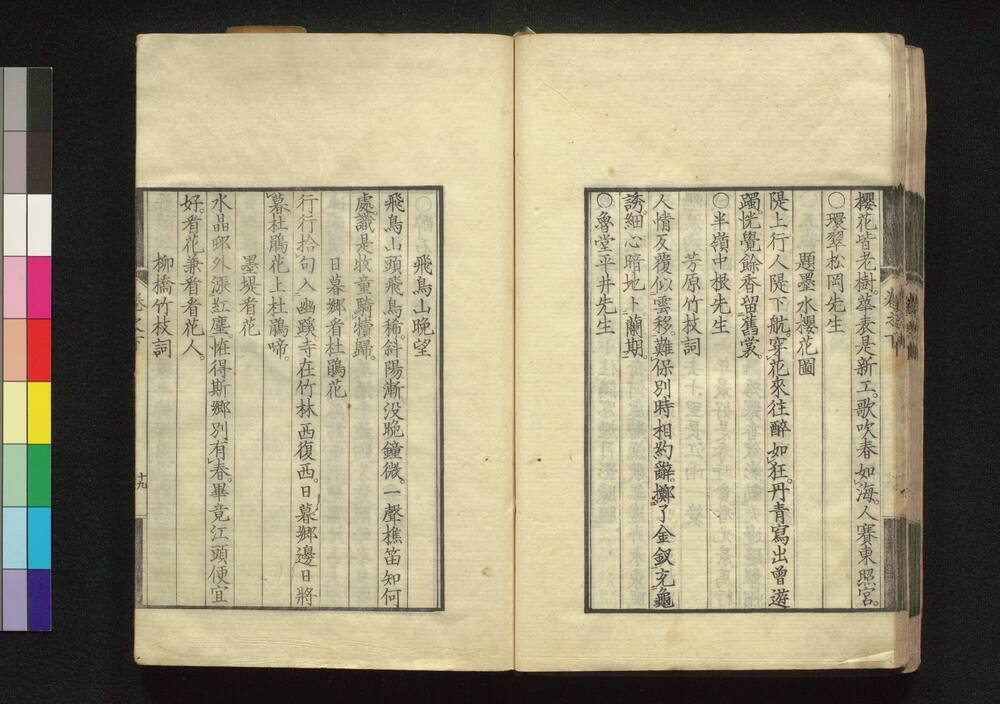 櫻花皆老樹。華表是新工。歌吹春如海。人賽東照宮。
○環翠松岡先生
題墨水櫻花圖
隄上行人隄下航。穿花來往醉如狂。丹青寫出曾遊
躅。恍覺餘香留舊裳。
○半嶺中根先生
芳原竹枝詞
人情反覆似雲移。難保別時相約辭。擲了金釵充龜
誘。細心暗地卜蘭期。
○魯堂平井先生
飛鳥山晩望
飛鳥山頭飛鳥稀。斜陽漸没晩鐘微。一聲樵笛知何
處。識是牧童騎犢歸。
日暮鄉看杜鵑花
行行拾句入幽蹊。寺在竹林西復西。日暮鄉邊日將
暮。杜鵑花上杜鵑啼。
墨堤看花
水晶邨外漲紅塵。恠得斯鄉別有春。畢竟江頭便宜
好。看花兼看看花人。
柳橋竹枝詞
十九